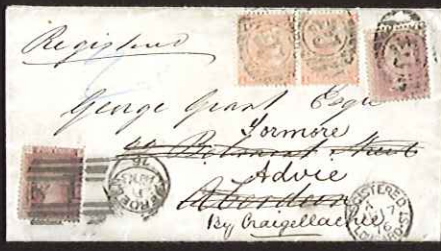 Registered
George Grant Esqre
Tormore
44 Belmont Street
Advie
Aberdeen
By Craigellachie
ABERDEEN
76
REGISTERED
LONDON